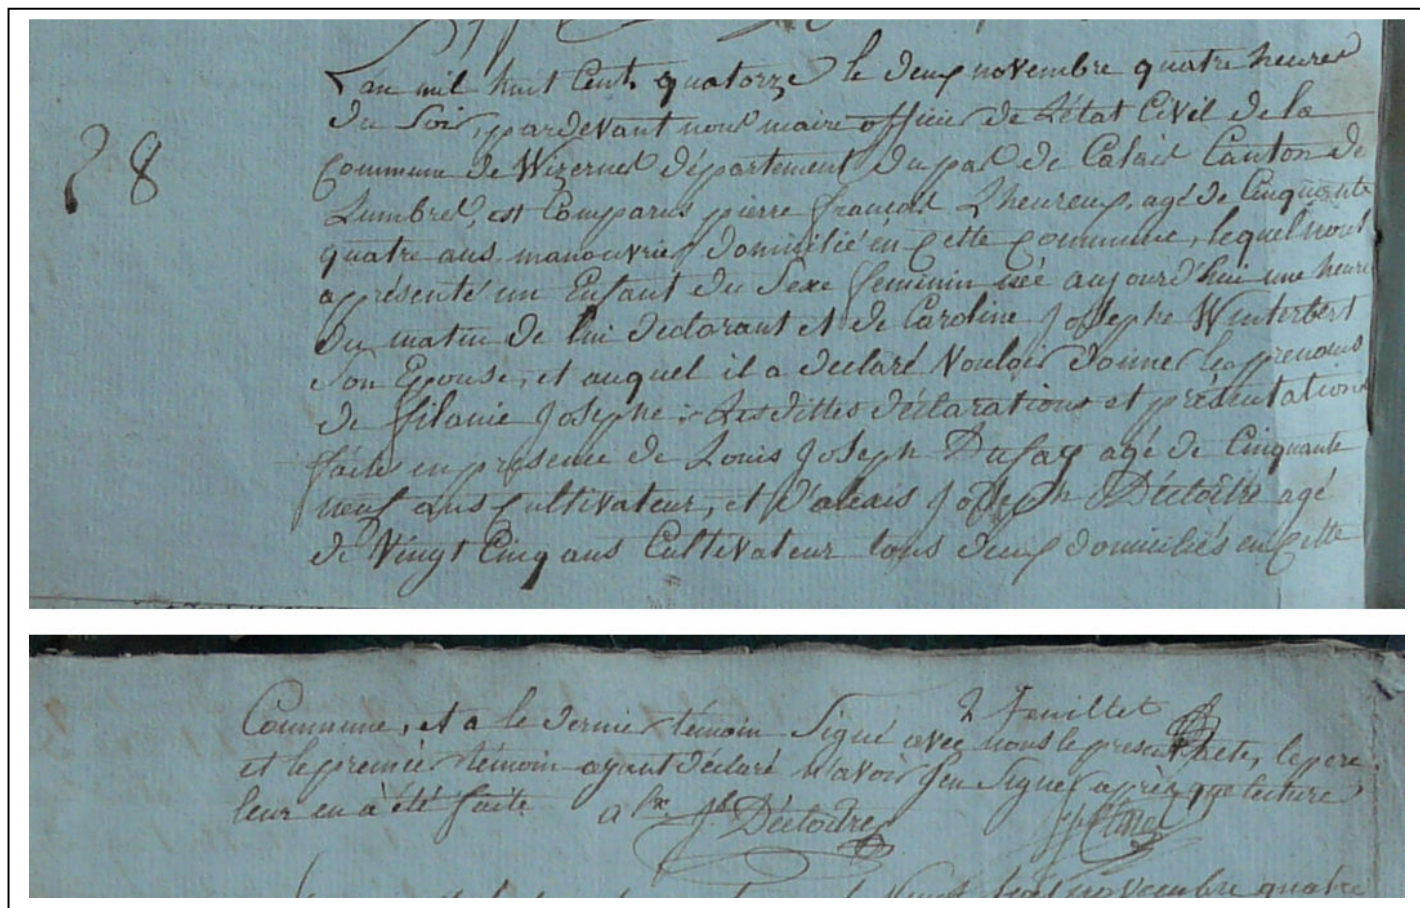 L'an mil huit Cent quatorze le deux novembre quatre heures
du Soir, pardevant nous maire officier de L'état Civil de la
28
Commune de Wizernes département du pas de Calais Canton de
Lumbres, est Comparus pierre françois Lheureux, agé de Cinquante
quatre ans manouvrier domicilié en Cette Commune, lequel nous
a présenté un Enfant du Sexe feminin née aujourd'hui une heure
du matin de lui declarant et de Caroline Josephe Winterbert
Son Epouse, et auquel il a declaré Vouloir donner les prenoms
de filanie Josephe Les dittes déclarations et présentations
faite en présence de Louis Joseph Dufay agé de Cinquante
neuf ans Cultivateur, et Joseph Décloître agé
de Vingt Cinq ans Cultivateur tous deux domiciliés en Cette
2 feuillet
Commune, et a le dernier témoin Signé avec nous le present acte, le pere
et le premier témoin ayant déclaré n'avoir Seu Signer après que lecture
leur en à été faite
alx. Jh Décloître